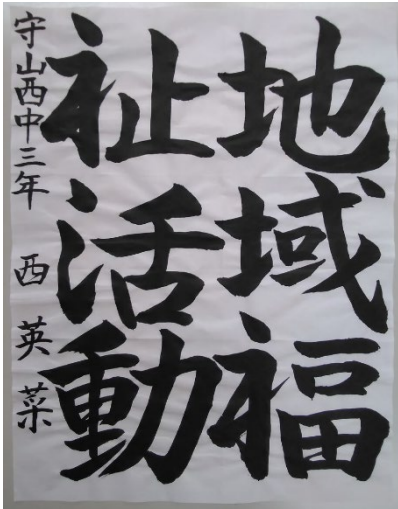 地域福
祉活動
守山西中三年 西 英菜